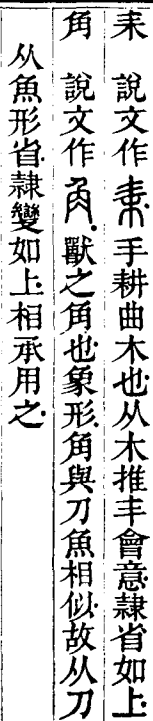 耒 說文作耒手耕曲木也从木推丰會意隸省如上
角 說文作𧢲獸之角也象形角與刀魚相似故从刀
从魚形省隸變如上相承用之